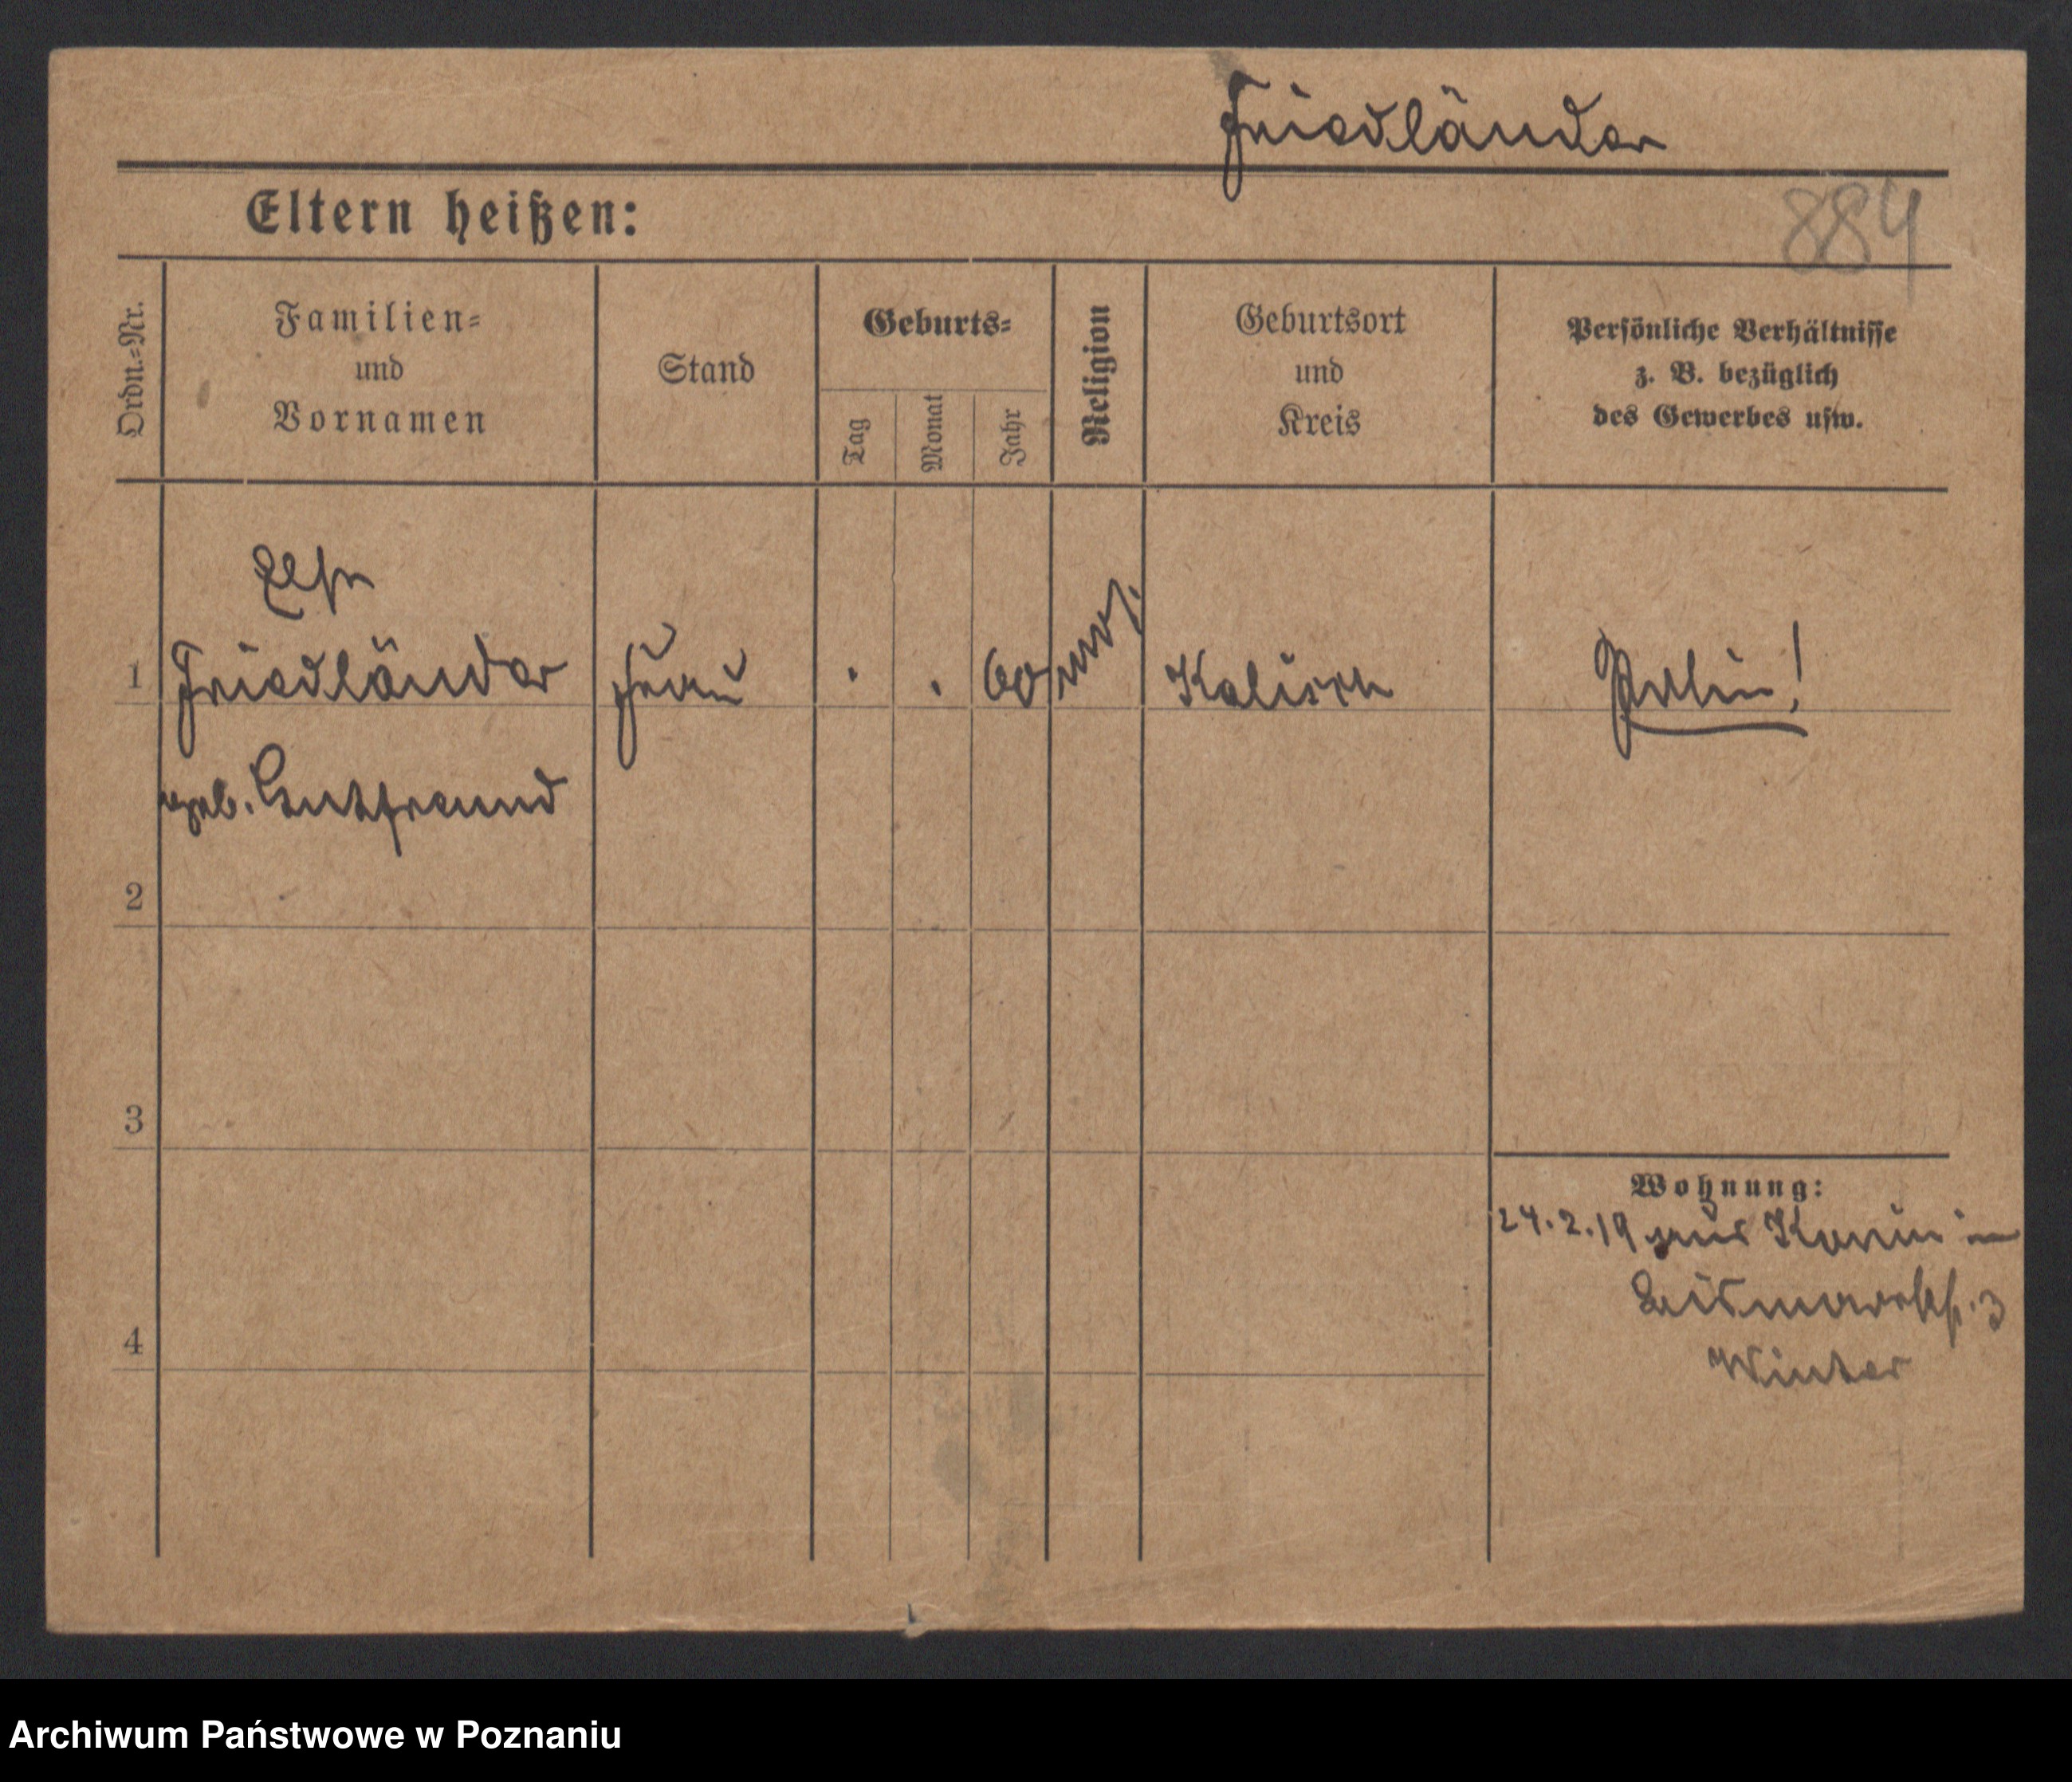 Friedländer
884
Eltern heißen:
Ordn.=Nr.
Familien=
und
Vornamen
Stand
Geburts=
Tag
Monat
Jahr
Religion
Geburtsort
und
Kreis
Persönliche Verhältnisse
z. B. bezüglich
des Gewerbes usw.
1 Friedländer Frau . . 60 mos. Kalisch Polin!
geb. Gutfreund
2
3
Wohnung:
24.2.19 aus Konin in
Bismarckst. 3
4
Winter
Archiwum Państwowe w Poznaniu